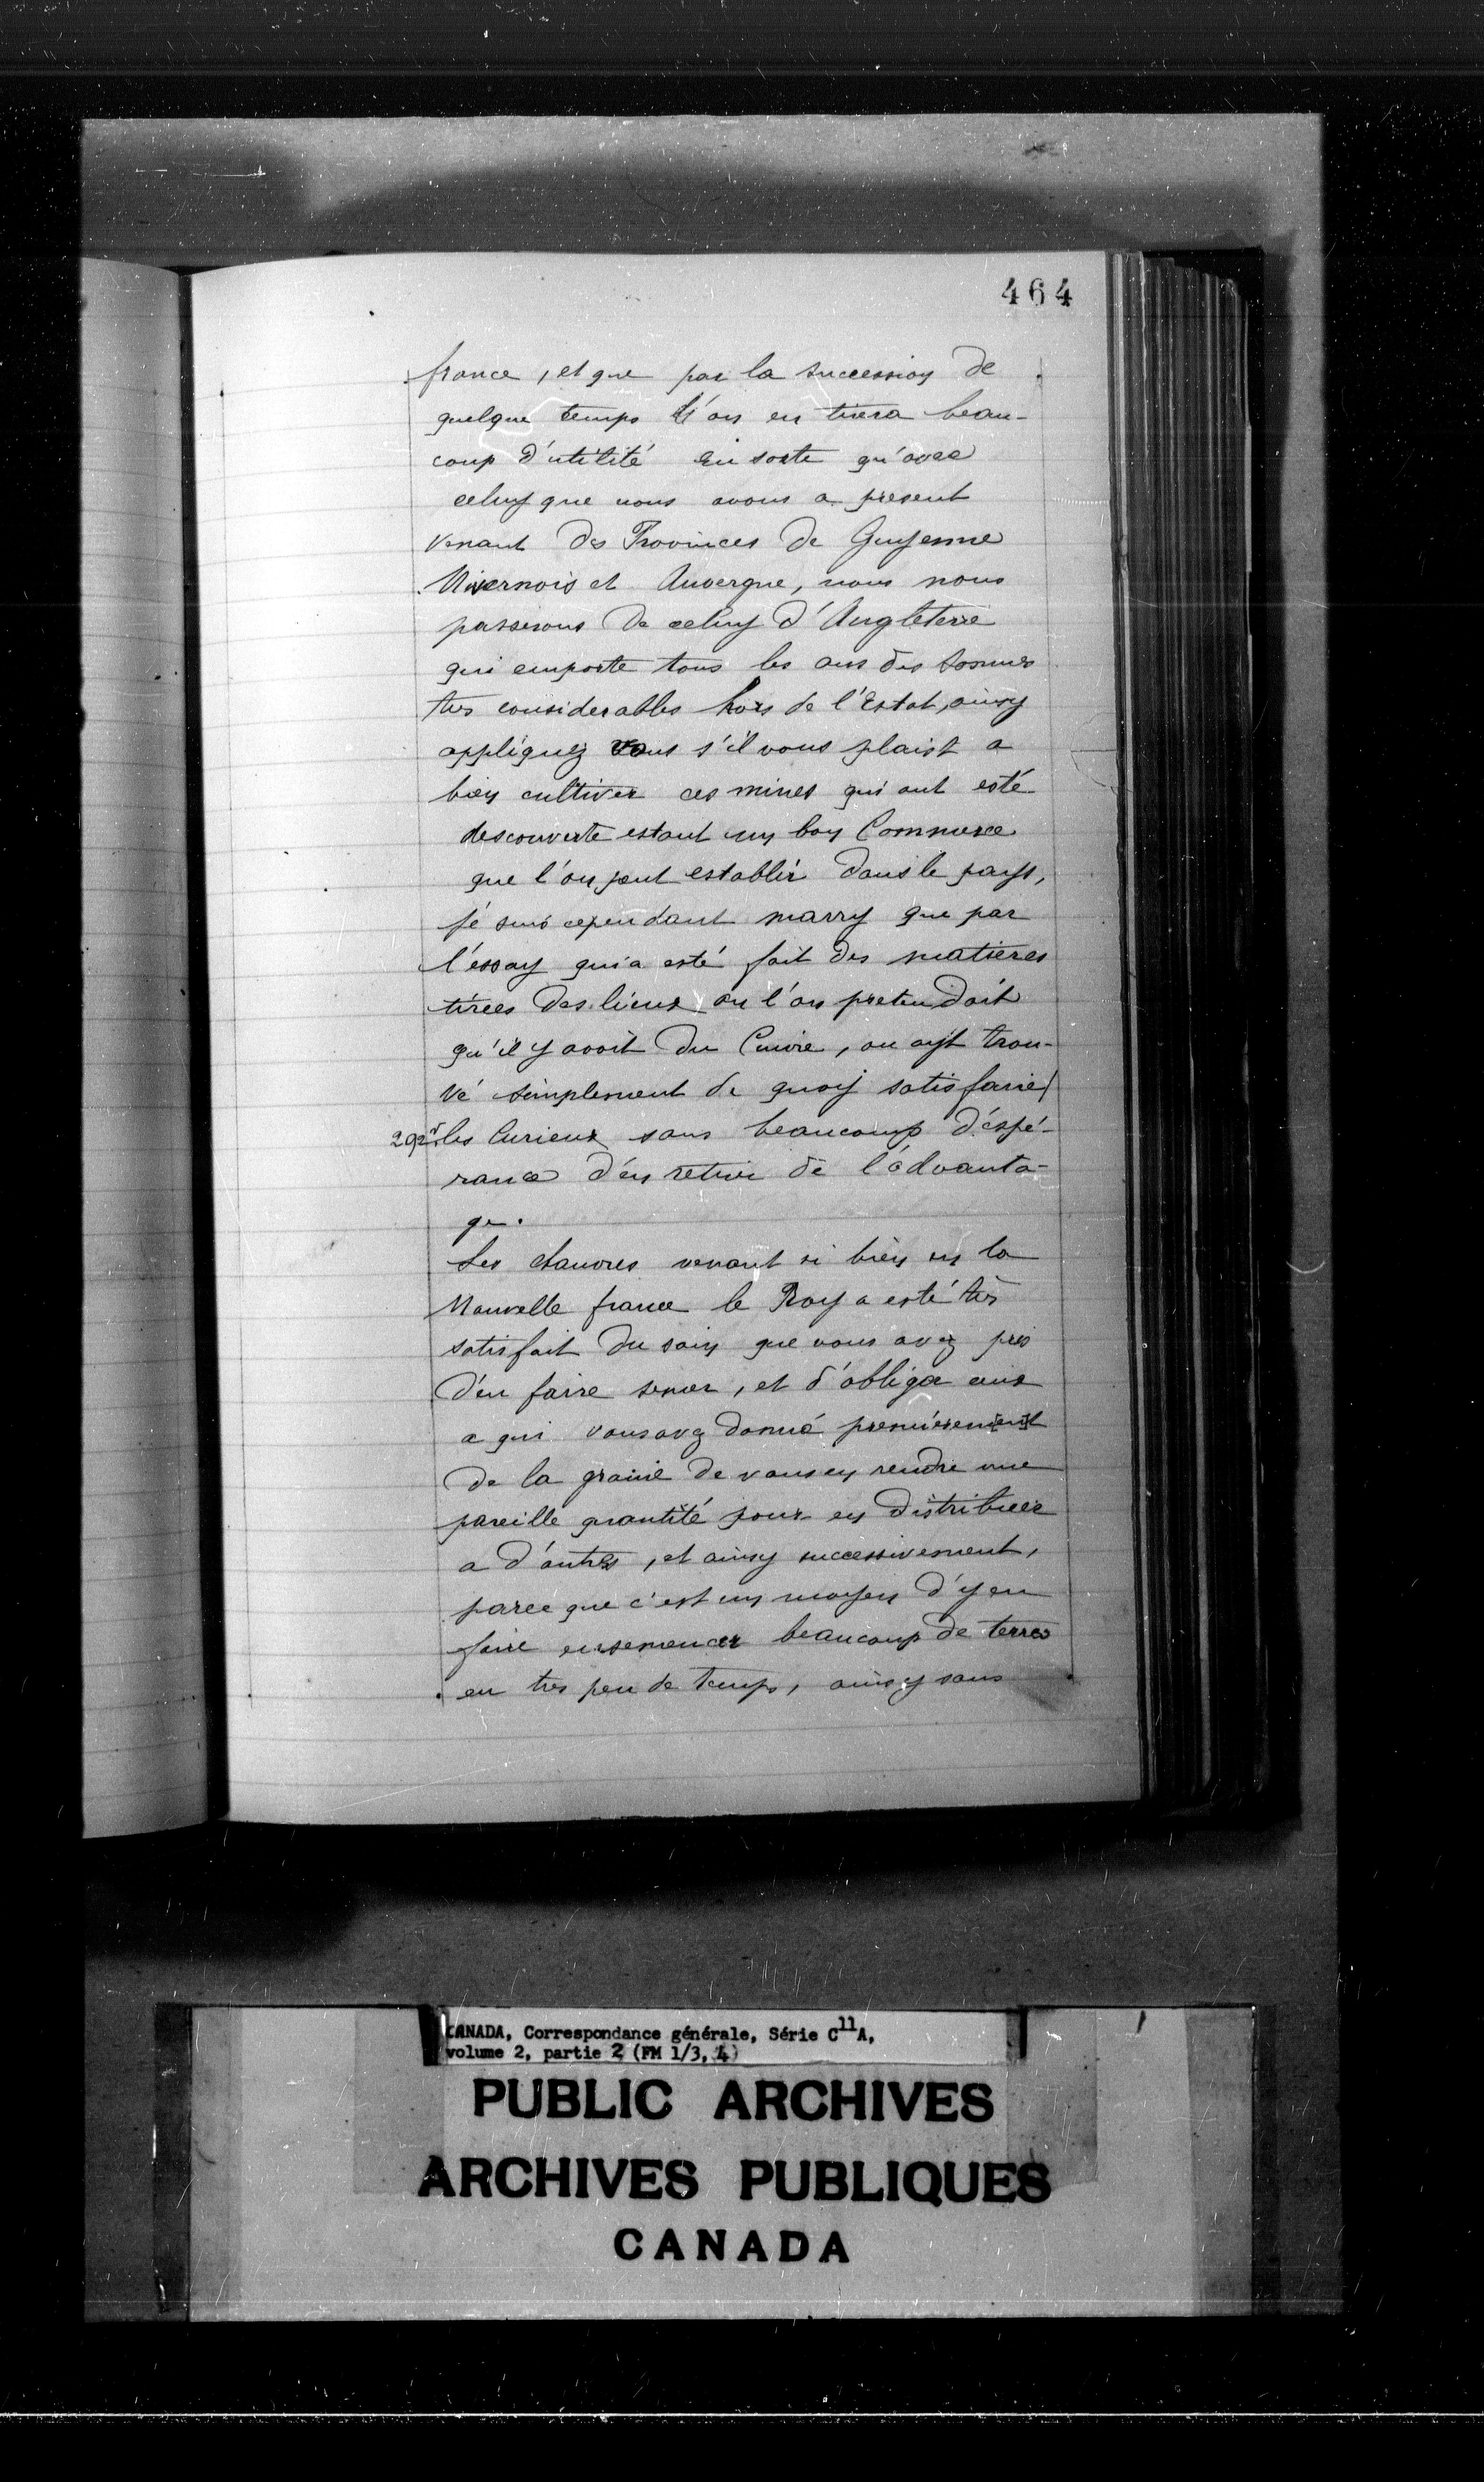 464
france, et que par la succession de
quelque temps l'on en tirera beau-
coup d'utilité en sorte qu'avec
celuy que nous avons a present
venant des Provinces de Guyenne
Nivernois et Auvergne, nous nous
passerons de celuy d'Angleterre
qui emporte tous les ans des sommes
tres considerables hors de l'Estat, ainsy
appliquez vous s'il vous plaist a
bien cultiver ces mines qui ont esté
descouverte estant un bon Commerce
que l'on peut establir dans le pays,
je suis cependant marry que par
l'essay qui a esté fait des matieres
tirées des lieux ou l'on pretendoit
qu'il y avoit du Cuivre, on ayt trou-
vé simplement de quoy satisfaire/
292r. les Curieux sans beaucoup d'espé-
rance d'en retirer de l'advanta-
ge.
Les chanvres venant si bien en la
Nouvelle france le Roy a esté très
satisfait du soin que vous avez pris
d'en faire semer, et d'obliger ceux
a qui vous avez donné premièrement
de la graine de vous en rendre une
pareille quantité pour en distribuer
a d'autres, et ainsy successivement,
parce que c'est un moyen d'y en
faire ensemencer beaucoup de terres
en tres peu de temps, ainsy sans
CANADA, Correspondance générale, Série C11A,
volume 2, partie 2 (FM 1/3, 4)
PUBLIC ARCHIVES
ARCHIVES PUBLIQUES
CANADA